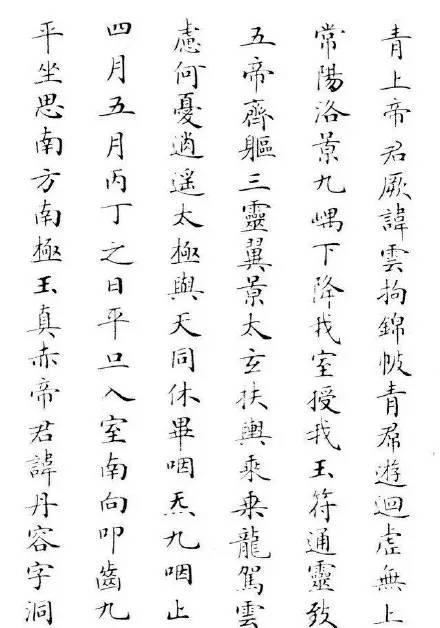 青上帝君厥諱雲拘錦帔青帬遊迴虛無上
常陽洛景九嵎下降我室授我玉符通靈致
五帝齊軀三靈翼景太玄扶輿乘乘龍駕雲
慮何憂逍遥太極與天同休畢咽炁九咽止
四月五月丙丁之日平旦入室南向叩齒九
平坐思南方南極玉真赤帝君諱丹容字洞